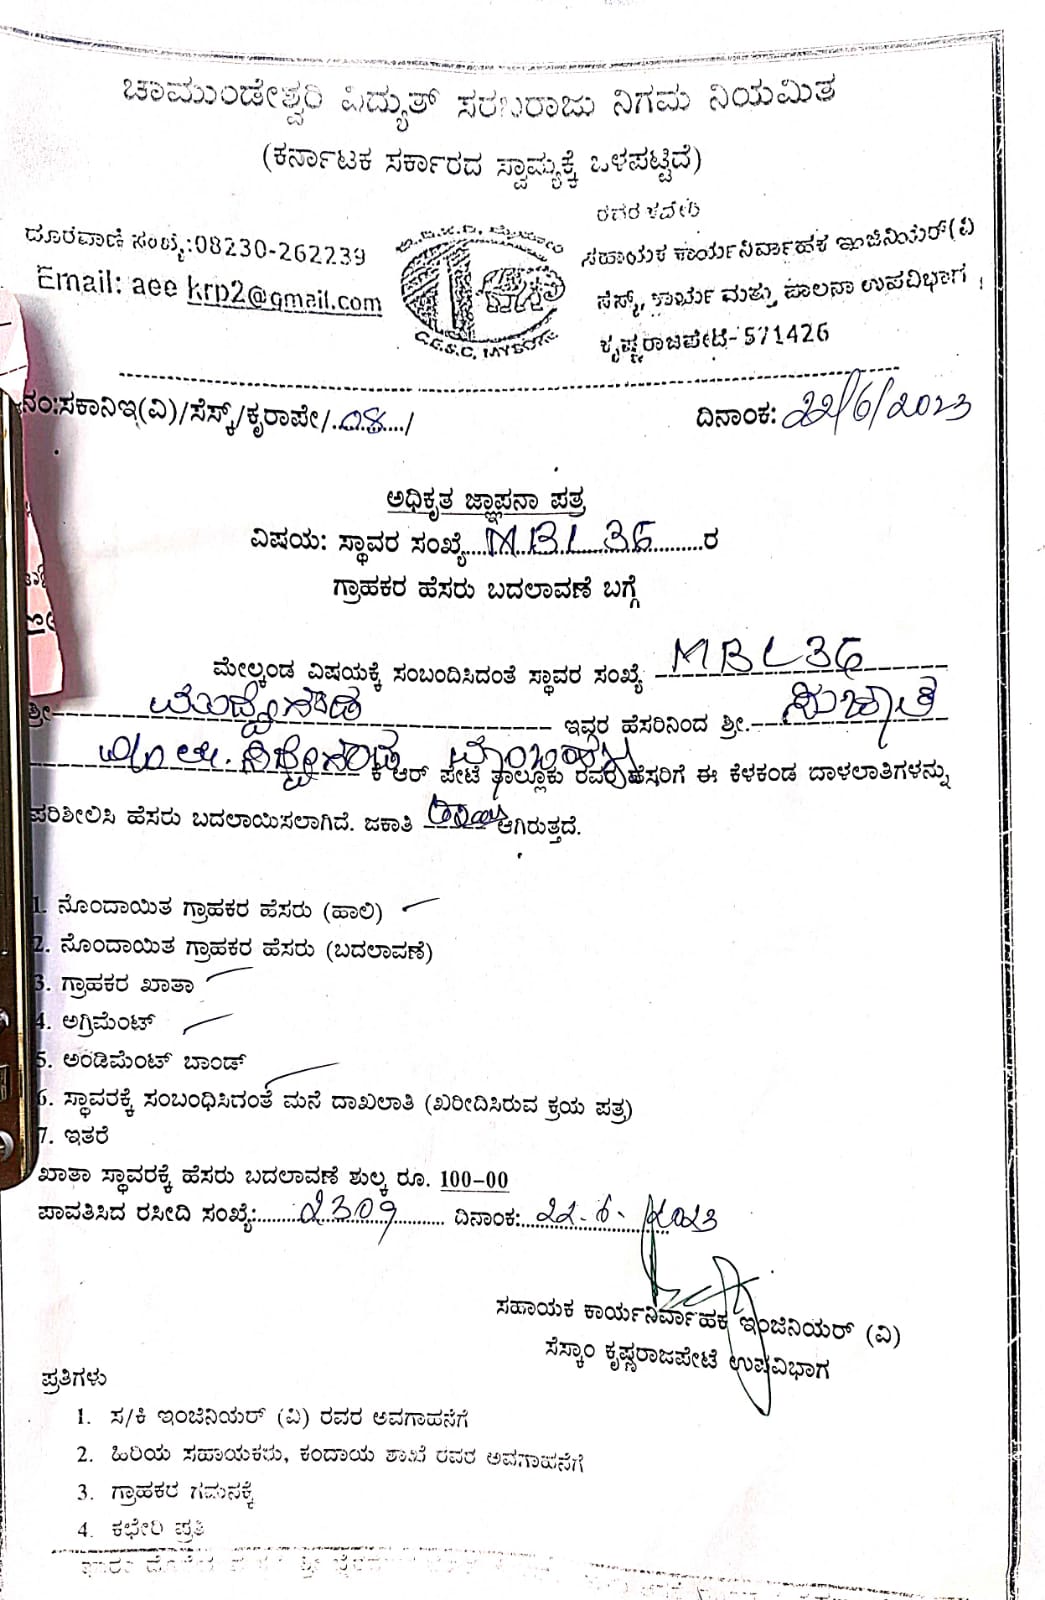 ಚಾಮುಂಡೇಶ್ವರಿ ವಿದ್ಯುತ್ ಸರಬರಾಜು ನಿಗಮ ನಿಯಮಿತ
(ಕರ್ನಾಟಕ ಸರ್ಕಾರದ ಸ್ವಾಮ್ಯಕ್ಕೆ ಒಳಪಟ್ಟಿದೆ)
ದೂರವಾಣಿ ಸಂಖ್ಯೆ:08230-262239
Email: aee krp2@gmail.com
C.E.S.C, MYSORE
ರವರ ಕಛೇರಿ
ಸಹಾಯಕ ಕಾರ್ಯನಿರ್ವಾಹಕ ಇಂಜಿನಿಯರ್(ವಿ
ಸೆಸ್ಕ್, ಕಾರ್ಯ ಮತ್ತು ಪಾಲನಾ ಉಪವಿಭಾಗ
ಕೃಷ್ಣರಾಜಪೇಟೆ- 571426
ನಂ:ಸಕಾನಿಇ(ವಿ)/ಸೆಸ್ಕ್/ಕೃರಾಪೇ/..08.../
ದಿನಾಂಕ: 22/6/2023
ಅಧಿಕೃತ ಜ್ಞಾಪನಾ ಪತ್ರ
ವಿಷಯ: ಸ್ಥಾವರ ಸಂಖ್ಯೆ....MBL 36.......ರ
ಗ್ರಾಹಕರ ಹೆಸರು ಬದಲಾವಣೆ ಬಗ್ಗೆ
ಮೇಲ್ಕಂಡ ವಿಷಯಕ್ಕೆ ಸಂಬಂದಿಸಿದಂತೆ ಸ್ಥಾವರ ಸಂಖ್ಯೆ MBL36
ಶ್ರೀ ಇವರ ಹೆಸರಿನಿಂದ ಶ್ರೀ. ಸುಜಾತ
ಕೆ ಆರ್ ಪೇಟೆ ತಾಲ್ಲೂಕು ರವರ ಹೆಸರಿಗೆ ಈ ಕೆಳಕಂಡ ದಾಳಲಾತಿಗಳನ್ನು
ಪರಿಶೀಲಿಸಿ ಹೆಸರು ಬದಲಾಯಿಸಲಾಗಿದೆ. ಜಕಾತಿ ಆಗಿರುತ್ತದೆ.
1. ನೊಂದಾಯಿತ ಗ್ರಾಹಕರ ಹೆಸರು (ಹಾಲಿ)
2. ನೊಂದಾಯಿತ ಗ್ರಾಹಕರ ಹೆಸರು (ಬದಲಾವಣೆ)
3. ಗ್ರಾಹಕರ ಖಾತಾ
4. ಅಗ್ರಿಮೆಂಟ್
5. ಅಂಡಿಮೆಂಟ್ ಬಾಂಡ್
6. ಸ್ಥಾವರಕ್ಕೆ ಸಂಬಂಧಿಸಿದಂತೆ ಮನೆ ದಾಖಲಾತಿ (ಖರೀದಿಸಿರುವ ಕ್ರಯ ಪತ್ರ)
7. ಇತರೆ
ಖಾತಾ ಸ್ಥಾವರಕ್ಕೆ ಹೆಸರು ಬದಲಾವಣೆ ಶುಲ್ಕ ರೂ. 100-00
ಪಾವತಿಸಿದ ರಸೀದಿ ಸಂಖ್ಯೆ:......2309....... ದಿನಾಂಕ:..22.6.2023
ಸಹಾಯಕ ಕಾರ್ಯನಿರ್ವಾಹಕ ಇಂಜಿನಿಯರ್ (ವಿ)
ಸೆಸ್ಕಾಂ ಕೃಷ್ಣರಾಜಪೇಟೆ ಉಪವಿಭಾಗ
ಪ್ರತಿಗಳು
1. ಸ/ಕಿ ಇಂಜಿನಿಯರ್ (ವಿ) ರವರ ಅವಗಾಹನೆಗೆ
2. ಹಿರಿಯ ಸಹಾಯಕರು, ಕಂದಾಯ ಶಾಖೆ ರವರ ಅವಗಾಹನೆಗೆ
3. ಗ್ರಾಹಕರ ಗಮನಕ್ಕೆ
4. ಕಛೇರಿ ಪ್ರತಿ